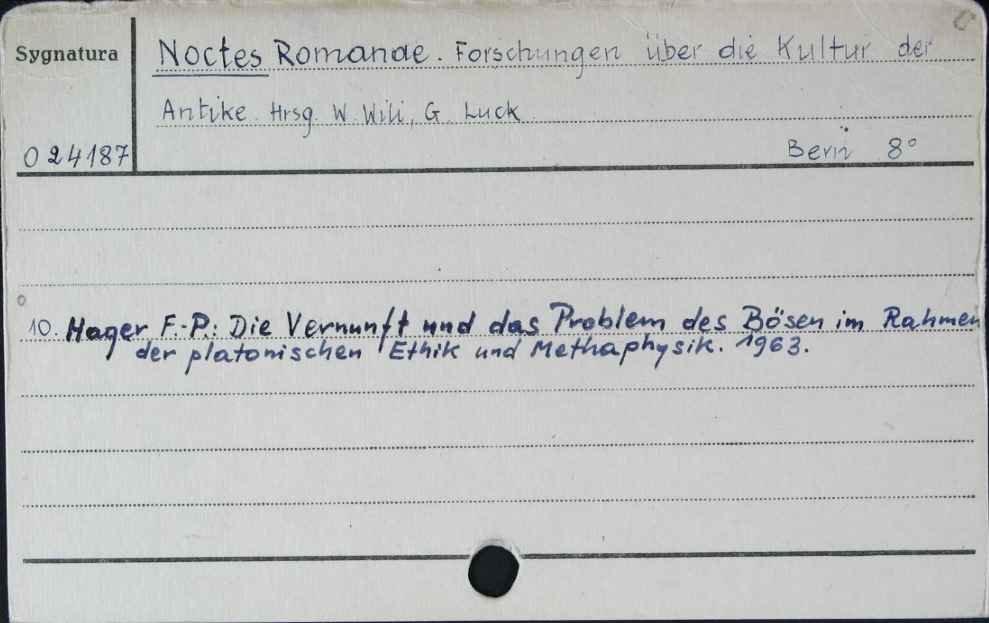 Sygnatura
Noctes Romanae. Forschungen über die Kultur der
Antike. Hrsg. W. Wili, G. Luck
024187
Bern 8°
10. Hager F.-P.: Die Vernunft und das Problem des Bösen im Rahmen
der platonischen Ethik und Methaphysik. 1963.